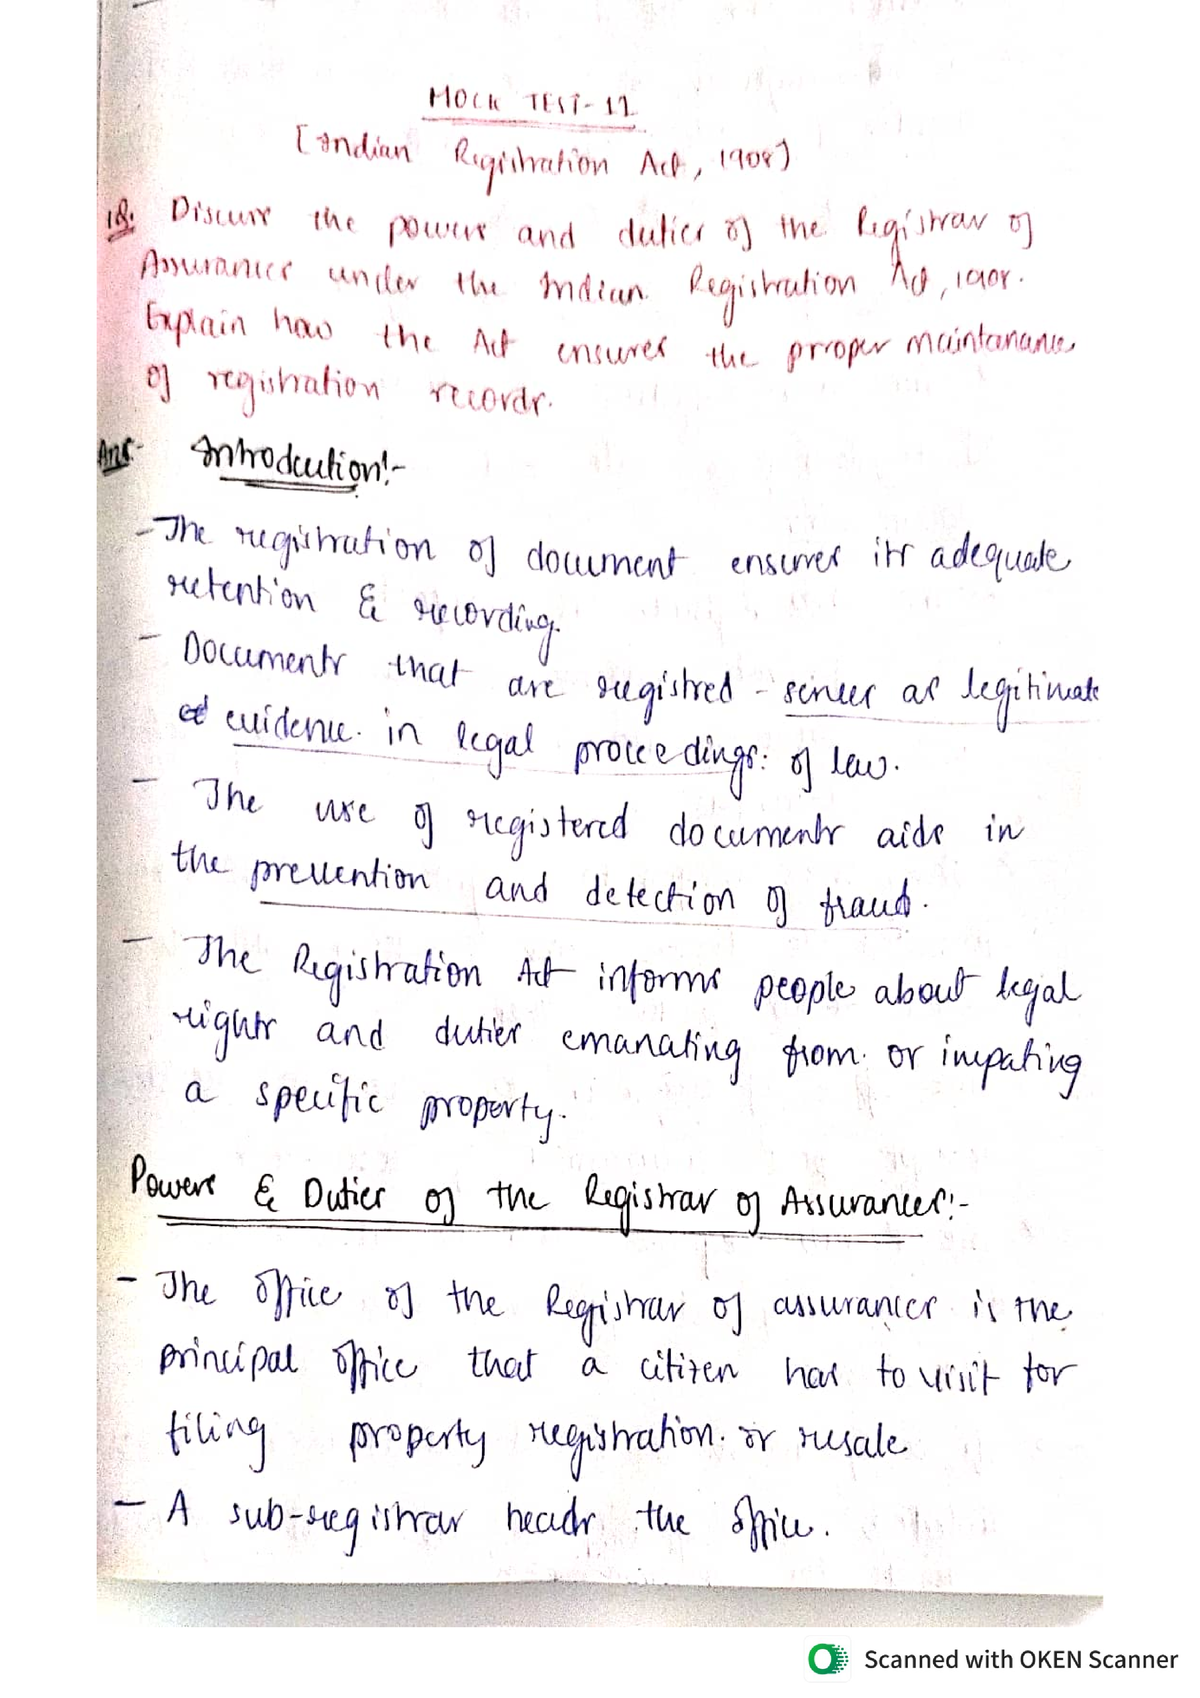 MOCK TEST-11
[Indian Registration Act, 1908]
1Q. Discuss the powers and duties of the Registrar of
Assurances under the Indian Registration Act, 1908.
Explain how the Act ensures the prroper maintanance
of registration records.
Ans:- Introdcution:-
- The registration of document ensures its adequate
retention & recording.
- Documents that are registred - serves as legitimate
evidence. in legal proceedings. of law.
- The use of registered documents aids in
the prevention and detection of fraud.
- The Registration Act informs people about legal
rights and duties emanating from. or impating
a specific property.
Powers & Duties of the Registrar of Assurances:-
- The office of the Registrar of assurances is the
principal office that a citizen has to visit for
filing property registration. or resale
- A sub-registrar heads the office.
Scanned with OKEN Scanner